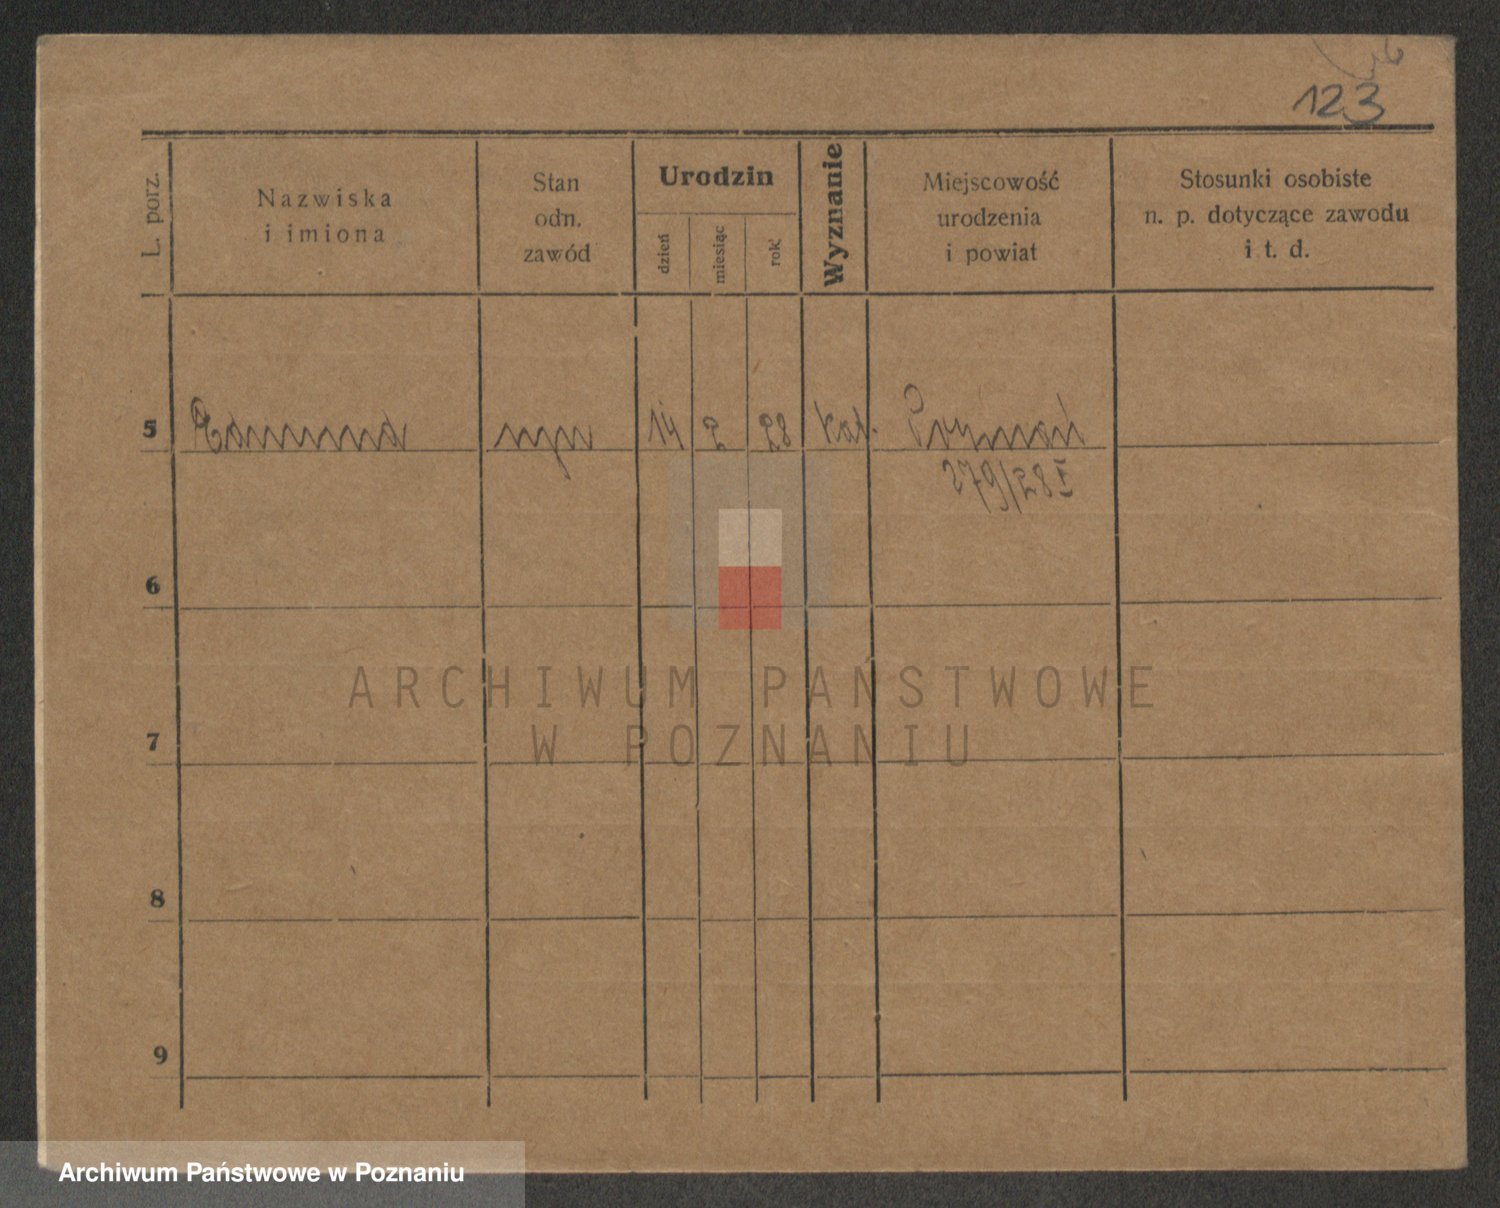 123
L. porz.
Nazwiska
i imiona
Stan
odn.
zawód
Urodzin
dzień
miesiąc
rok
Wyznanie
Miejscowość
urodzenia
i powiat
Stosunki osobiste
n. p. dotyczące zawodu
i t. d.
5 Edmund syn 14 2 28 kat. Poznań
279/28 I
6
7
8
9
ARCHIWUM PAŃSTWOWE
W POZNANIU
Archiwum Państwowe w Poznaniu